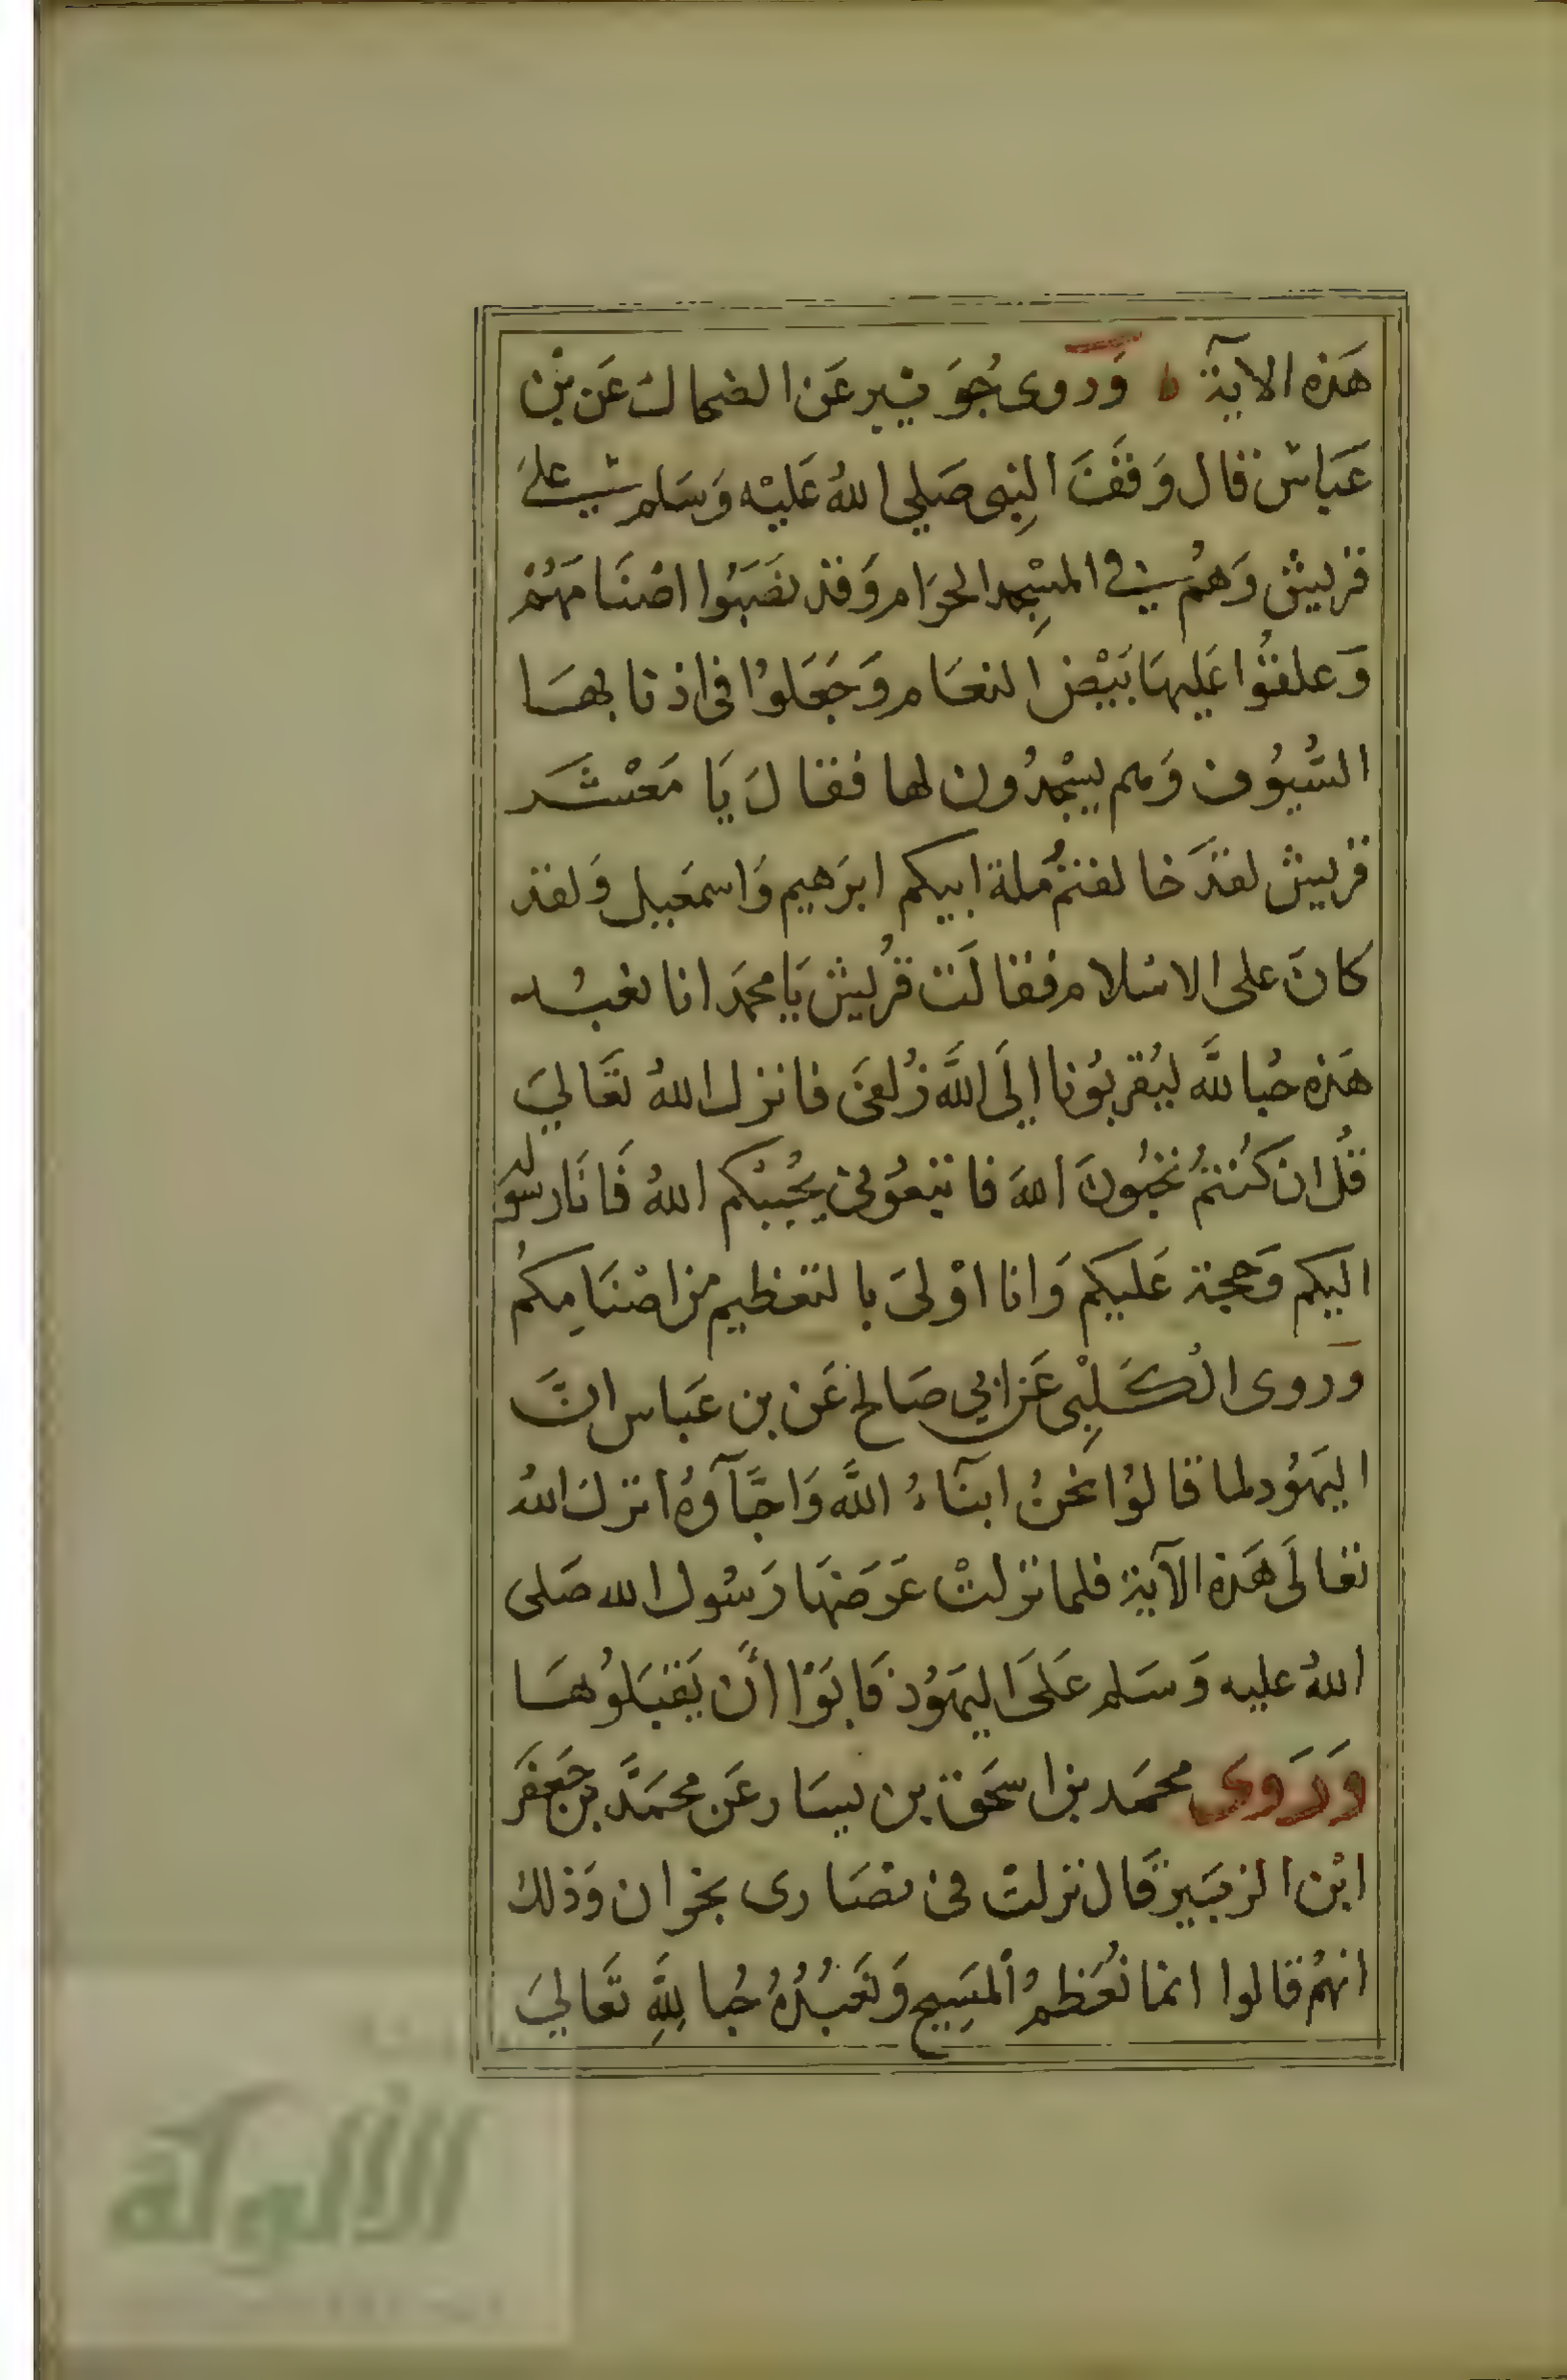 هَذِه الاية ه وَرَوى جُوَيبر عَن الضحاك عَن بن
عَباس قال وَقفَ النِبى صَلي اللهُ عَليْه وَسَلم على
قريش وَهُم في المسْجِد الحرَام وَقد نصَبَوُا اصْنَامَهُمْ
وَعلقوُا عَليهَا بَيْض النعَام وَجَعَلوُا فى اذنابهَا
السُّيوُف وَهم يسْجدُون لها فقال يَا مَعْشَر
قريش لقدَ خالفتمُ ملة ابيكم ابرَهيم وَاسمعَيل وَلقد
كانَ على الاسْلام فقالَت قرُيش يَا محمَد انا نعبُد
هَذِه حُبا للَّه ليُقربوُنا اِلَى اللَّه زُلفىَ فانزل اللهُ تعَالىَ
قلُ ان كُنتمُ تحبُّونَ اللهَ فاتبعوُنى يُحْبِبْكم اللهُ فَانَا رسُوله
اليكم وَحجة عَليكم وَانا اوْلىَ بالتعَظيم من اصْنَامِكمُ
وَروى الْكَلْبِى عَن ابي صَالح عَن بن عَباس انَّ
اليَهوُد لما قالوُا نحَنُ ابنَآءُ اللَّه وَاحبَّآؤهُ انزل اللهُ
تعَالَى هَذِه الآية فلما نزلتْ عَرَضَهَا رَسُول الله صَلى
اللهُ عليه وَسَلم عَلىَ اليهَوُد فَابَوْا أَن يَقبَلوُهَا
وَرَوى محمَد بن اسحَق بن يسَار عَن محمَد بن جَعفَر
ابْن الزبَير قَال نزلتْ فى نصَارى نجران وَذلك
انهمُ قالوا انما نُعَظمُ المسَِيح وَنَعْبُدُهُ حُبا لِلَّهِ تعَالىَ
الألوكة